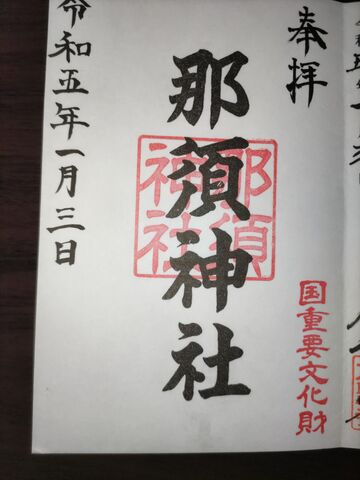 奉拝
国重要文化財
那須神社
那須
神社
令和五年一月三日